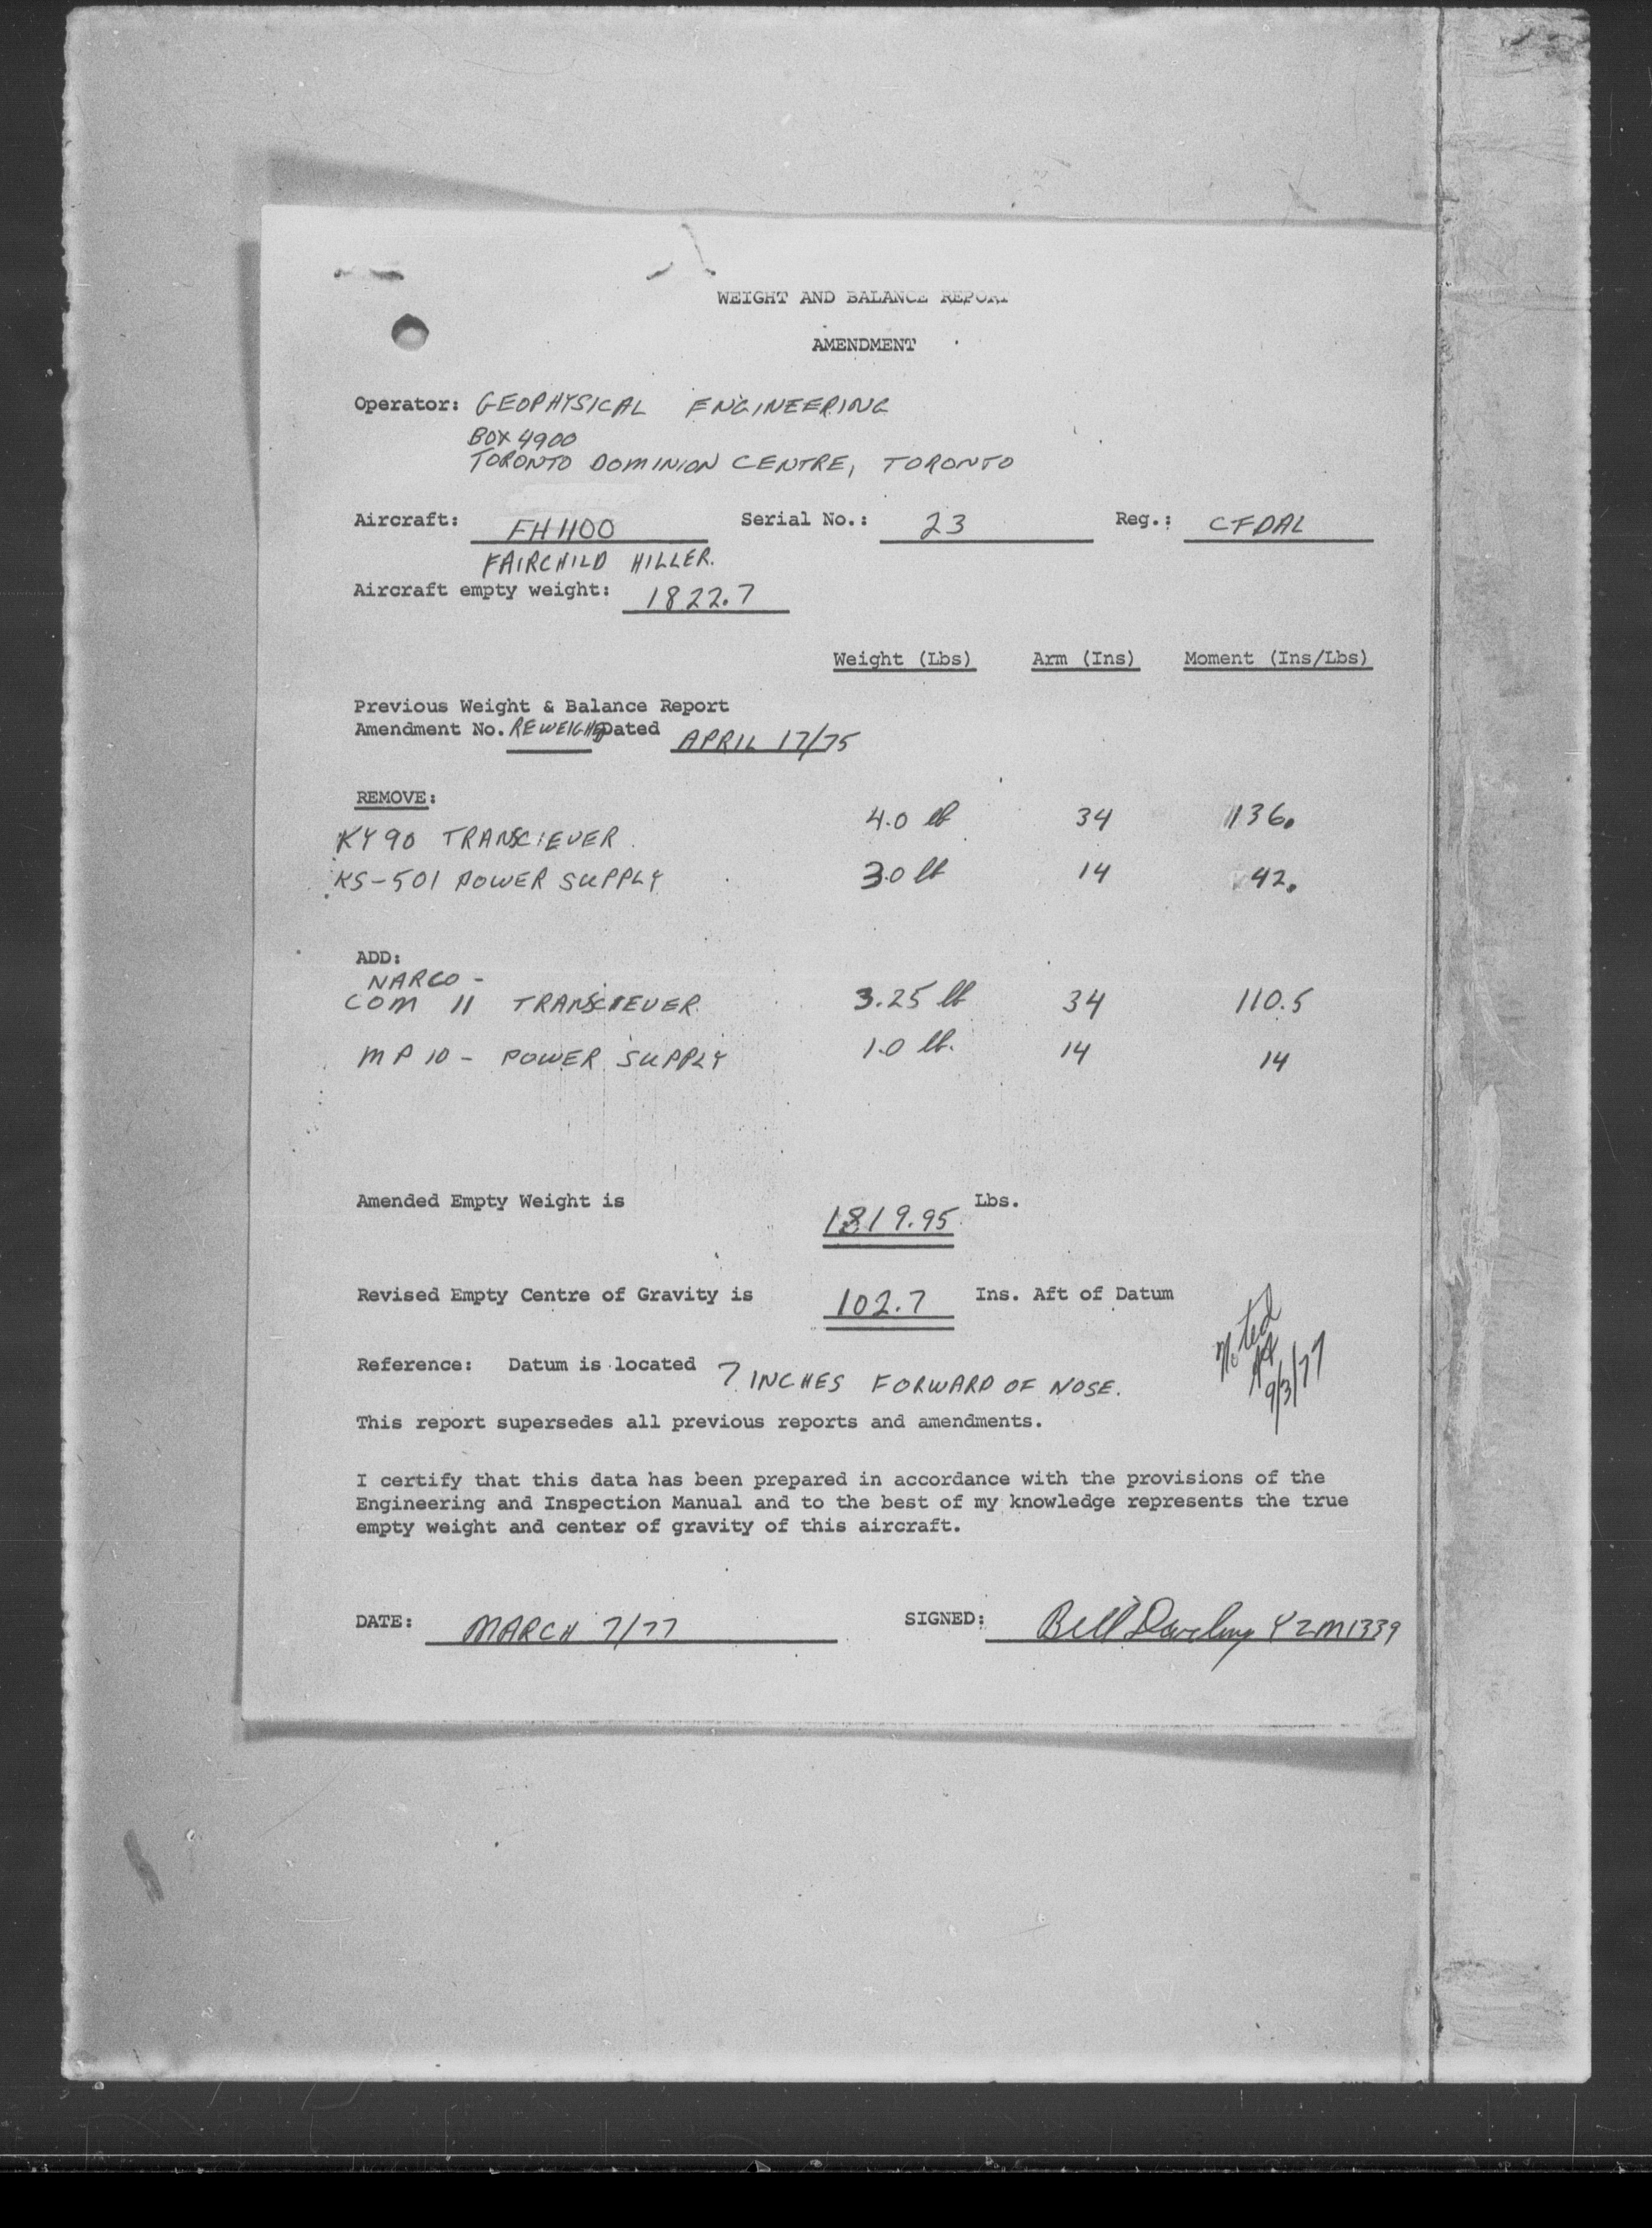 WEIGHT AND BALANCE REPORT
AMENDMENT
Operator: GEOPHYSICAL ENGINEERING
BOX 4900
TORONTO DOMINION CENTRE, TORONTO
Aircraft: FH1100 Serial No.: 23 Reg.: CFDAL
FAIRCHILD HILLER.
Aircraft empty weight: 1822.7
Weight (Lbs) Arm (Ins) Moment (Ins/Lbs)
Previous Weight & Balance Report
Amendment No. REWEIGHED Dated APRIL 17/75
REMOVE:
KY90 TRANSCIEVER. 4.0 lb 34 136.
KS-501 POWER SUPPLY 3.0 lb 14 42.
ADD:
NARCO -
COM 11 TRANSCIEVER. 3.25 lb 34 110.5
MP10 - POWER SUPPLY 1.0 lb. 14 14
Amended Empty Weight is 1819.95 Lbs.
Revised Empty Centre of Gravity is 102.7 Ins. Aft of Datum
Reference: Datum is located 7 INCHES FORWARD OF NOSE.
Noted
9/3/77
This report supersedes all previous reports and amendments.
I certify that this data has been prepared in accordance with the provisions of the
Engineering and Inspection Manual and to the best of my knowledge represents the true
empty weight and center of gravity of this aircraft.
DATE: MARCH 7/77 SIGNED: Bill Darling YZM1339